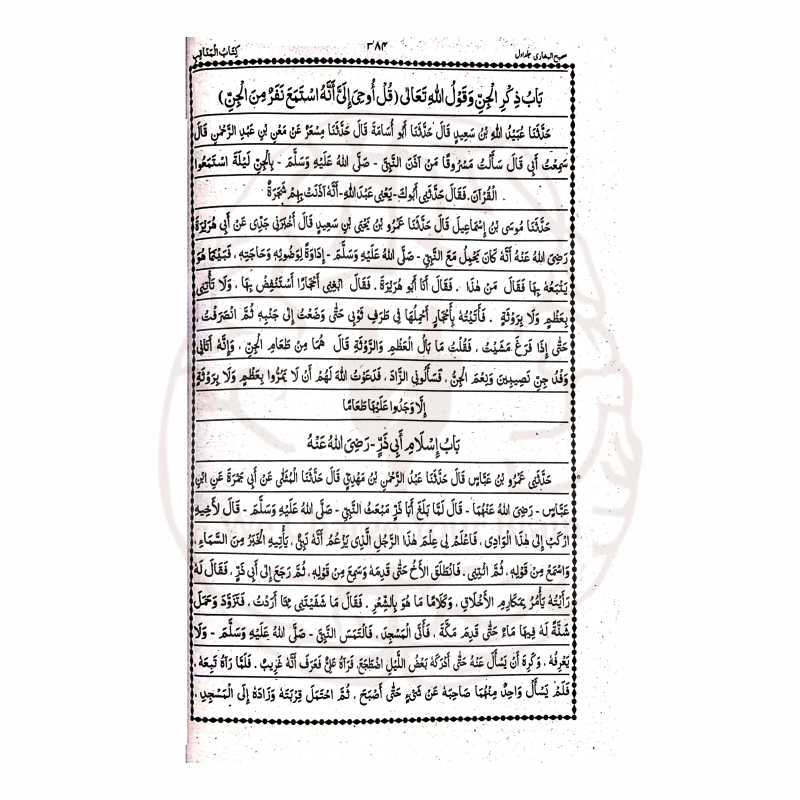 صحيح البخاری جلد اول ٣٨٤ كِتَابُ الْمَنَاقِبِ
بَابُ ذِكْرِ الْجِنِّ وَقَوْلُ اللهِ تَعَالٰى (قُلْ أُوحِىَ إِلَىَّ أَنَّهُ اسْتَمَعَ نَفَرٌ مِنَ الْجِنِّ)
حَدَّثَنَا عُبَيْدُ اللهِ بْنُ سَعِيدٍ قَالَ حَدَّثَنَا أَبُو أُسَامَةَ قَالَ حَدَّثَنَا مِسْعَرٌ عَنْ مَعْنِ بْنِ عَبْدِ الرَّحْمٰنِ قَالَ
سَمِعْتُ أَبِى قَالَ سَأَلْتُ مَسْرُوقًا مَنْ آذَنَ النَّبِىَّ - صَلَّى اللهُ عَلَيْهِ وَسَلَّمَ - بِالْجِنِّ لَيْلَةَ اسْتَمَعُوا
الْقُرْآنَ. فَقَالَ حَدَّثَنِى أَبُوكَ - يَعْنِى عَبْدَ اللهِ - أَنَّهُ آذَنَتْ بِهِمْ شَجَرَةٌ
حَدَّثَنَا مُوسَى بْنُ إِسْمَاعِيلَ قَالَ حَدَّثَنَا عَمْرُو بْنُ يَحْيَى بْنِ سَعِيدٍ قَالَ أَخْبَرَنِى جَدِّى عَنْ أَبِى هُرَيْرَةَ
رَضِىَ اللهُ عَنْهُ أَنَّهُ كَانَ يَحْمِلُ مَعَ النَّبِىِّ - صَلَّى اللهُ عَلَيْهِ وَسَلَّمَ - إِدَاوَةً لِوَضُوئِهِ وَحَاجَتِهِ ، فَبَيْنَمَا هُوَ
يَتْبَعُهُ بِهَا فَقَالَ مَنْ هٰذَا . فَقَالَ أَنَا أَبُو هُرَيْرَةَ . فَقَالَ ابْغِنِى أَحْجَارًا أَسْتَنْفِضْ بِهَا ، وَلَا تَأْتِنِى
بِعَظْمٍ وَلَا بِرَوْثَةٍ . فَأَتَيْتُهُ بِأَحْجَارٍ أَحْمِلُهَا فِى طَرَفِ ثَوْبِى حَتّٰى وَضَعْتُ إِلَى جَنْبِهِ ثُمَّ انْصَرَفْتُ ،
حَتّٰى إِذَا فَرَغَ مَشَيْتُ ، فَقُلْتُ مَا بَالُ الْعَظْمِ وَالرَّوْثَةِ قَالَ هُمَا مِنْ طَعَامِ الْجِنِّ ، وَإِنَّهُ أَتَانِى
وَفْدُ جِنِّ نَصِيبِينَ وَنِعْمَ الْجِنُّ ، فَسَأَلُونِى الزَّادَ ، فَدَعَوْتُ اللهَ لَهُمْ أَنْ لَا يَمُرُّوا بِعَظْمٍ وَلَا بِرَوْثَةٍ
إِلَّا وَجَدُوا عَلَيْهَا طَعَامًا
بَابُ إِسْلَامِ أَبِى ذَرٍّ - رَضِىَ اللهُ عَنْهُ
حَدَّثَنِى عَمْرُو بْنُ عَبَّاسٍ قَالَ حَدَّثَنَا عَبْدُ الرَّحْمٰنِ بْنُ مَهْدِىٍّ قَالَ حَدَّثَنَا الْمُثَنَّى عَنْ أَبِى جَمْرَةَ عَنِ ابْنِ
عَبَّاسٍ - رَضِىَ اللهُ عَنْهُمَا - قَالَ لَمَّا بَلَغَ أَبَا ذَرٍّ مَبْعَثُ النَّبِىِّ - صَلَّى اللهُ عَلَيْهِ وَسَلَّمَ - قَالَ لِأَخِيهِ
ارْكَبْ إِلَى هٰذَا الْوَادِى ، فَاعْلَمْ لِى عِلْمَ هٰذَا الرَّجُلِ الَّذِى يَزْعُمُ أَنَّهُ نَبِىٌّ ، يَأْتِيهِ الْخَبَرُ مِنَ السَّمَاءِ ،
وَاسْمَعْ مِنْ قَوْلِهِ ، ثُمَّ ائْتِنِى . فَانْطَلَقَ الْأَخُ حَتّٰى قَدِمَهُ وَسَمِعَ مِنْ قَوْلِهِ ، ثُمَّ رَجَعَ إِلَى أَبِى ذَرٍّ ، فَقَالَ لَهُ
رَأَيْتُهُ يَأْمُرُ بِمَكَارِمِ الْأَخْلَاقِ ، وَكَلَامًا مَا هُوَ بِالشِّعْرِ . فَقَالَ مَا شَفَيْتَنِى مِمَّا أَرَدْتُ ، فَتَزَوَّدَ وَحَمَلَ
شَنَّةً لَهُ فِيهَا مَاءٌ حَتّٰى قَدِمَ مَكَّةَ ، فَأَتَى الْمَسْجِدَ ، فَالْتَمَسَ النَّبِىَّ - صَلَّى اللهُ عَلَيْهِ وَسَلَّمَ - وَلَا
يَعْرِفُهُ ، وَكَرِهَ أَنْ يَسْأَلَ عَنْهُ حَتّٰى أَدْرَكَهُ بَعْضُ اللَّيْلِ اضْطَجَعَ ، فَرَآهُ عَلِىٌّ فَعَرَفَ أَنَّهُ غَرِيبٌ . فَلَمَّا رَآهُ تَبِعَهُ ،
فَلَمْ يَسْأَلْ وَاحِدٌ مِنْهُمَا صَاحِبَهُ عَنْ شَىْءٍ حَتّٰى أَصْبَحَ ، ثُمَّ احْتَمَلَ قِرْبَتَهُ وَزَادَهُ إِلَى الْمَسْجِدِ ،